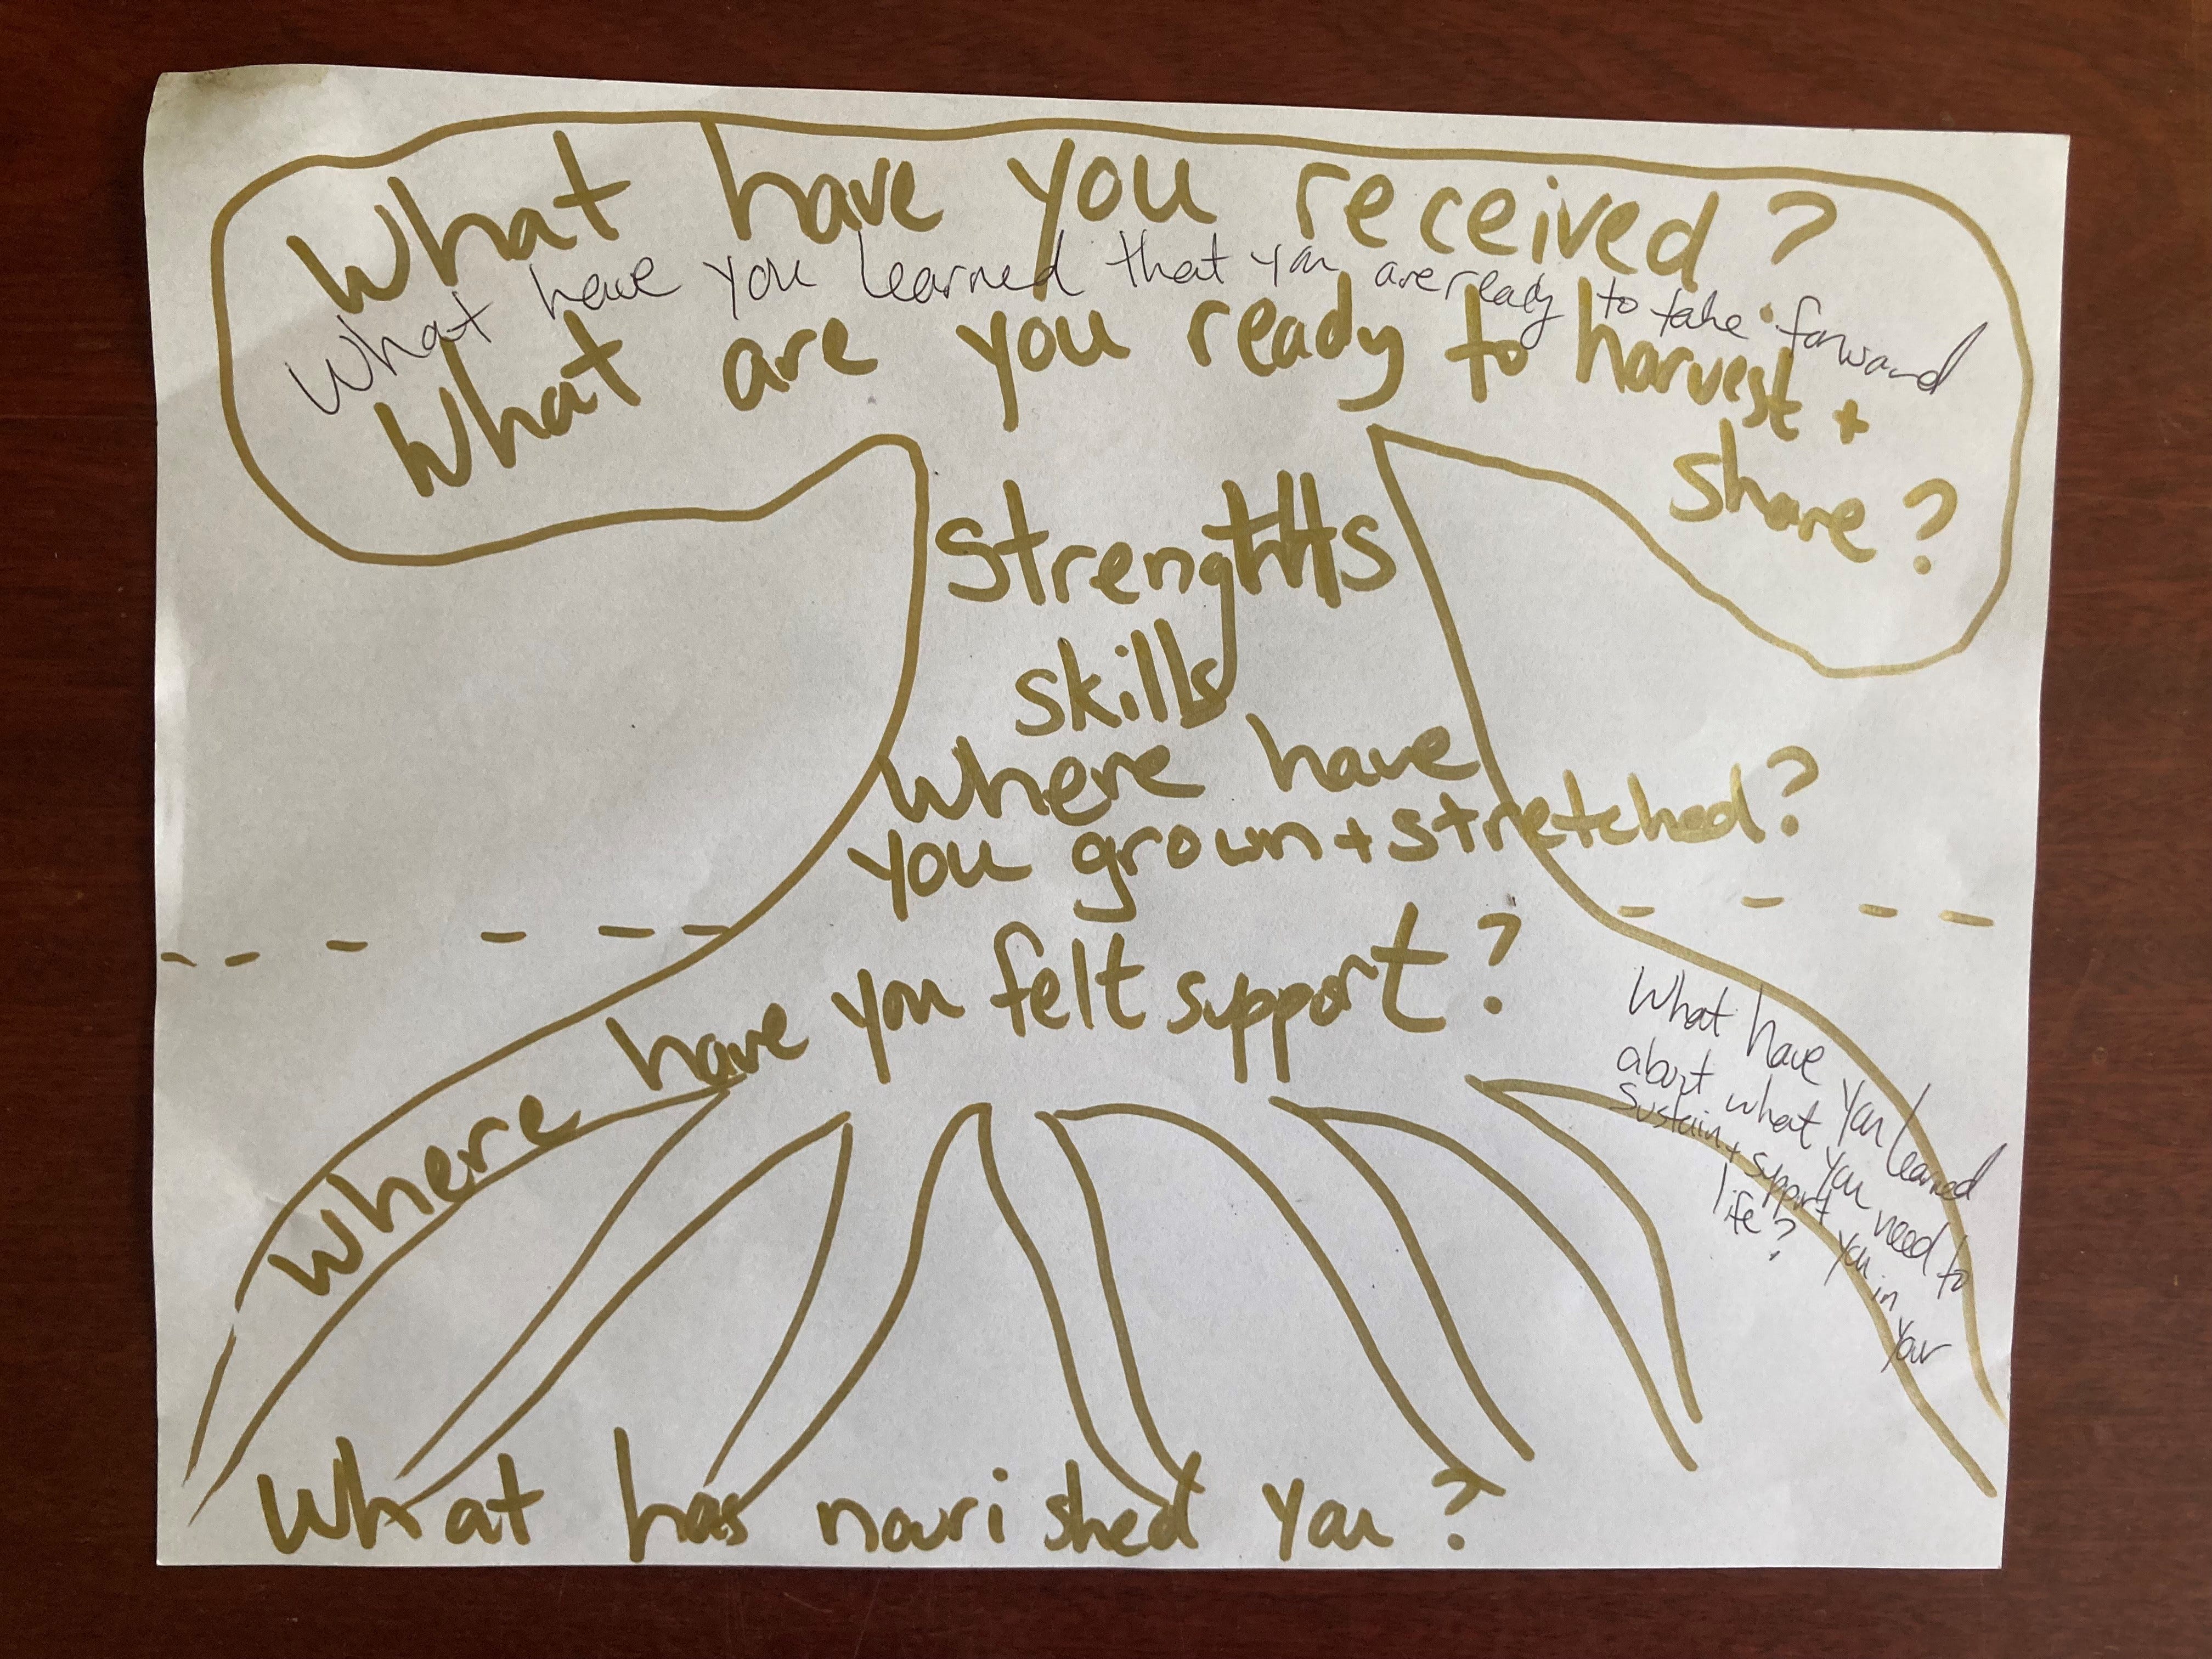 What have you received?
What have you learned that you are ready to take forward
What are you ready to harvest +
share?
Strengths
skills
where have
you grown + stretched?
where have you felt support?
What have you learned
about what you need to
sustain + support you in your
life?
What has nourished you?